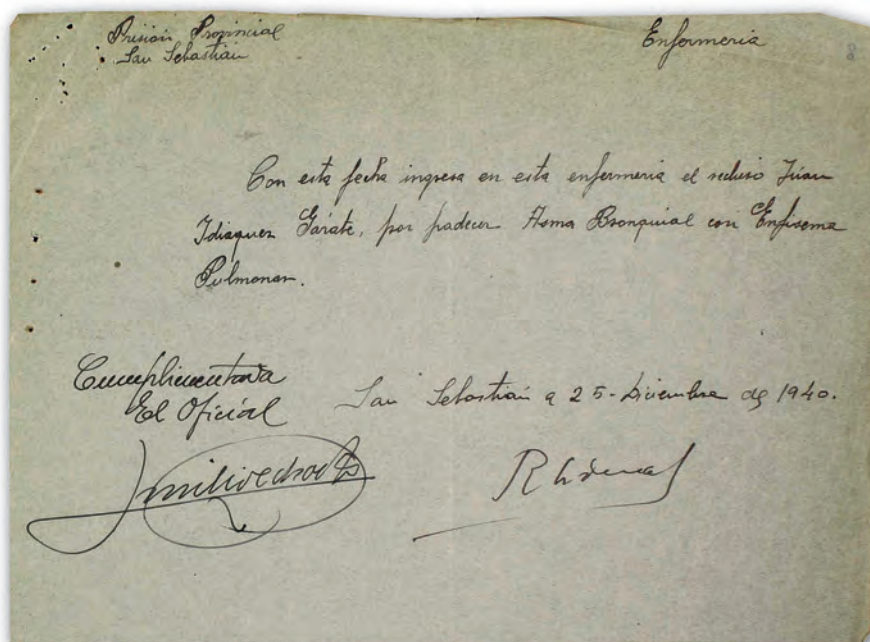 Prisión Provincial
San Sebastián
Enfermeria
8
Con esta fecha ingresa en esta enfermeria el recluso Juan
Idiaquez Gárate, por padecer Asma Bronquial con Enfisema
Pulmonar.
Cumplimentada
El Oficial
San Sebastián a 25-Diciembre de 1940.